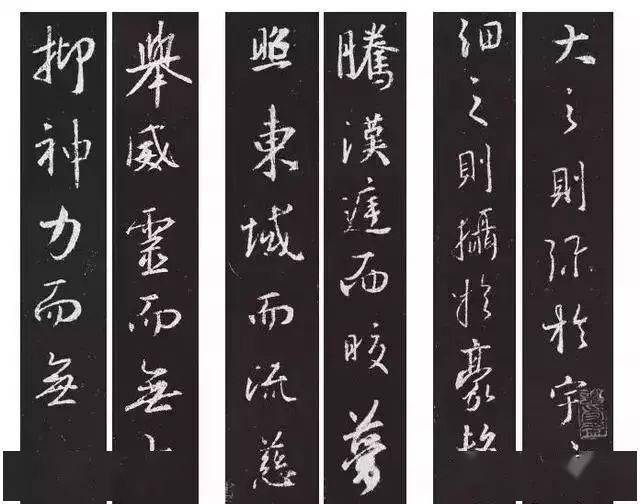 大之則弥於宇
細之則攝於豪
騰漢庭而皎夢
照東域而流慈
舉威靈而無
抑神力而無